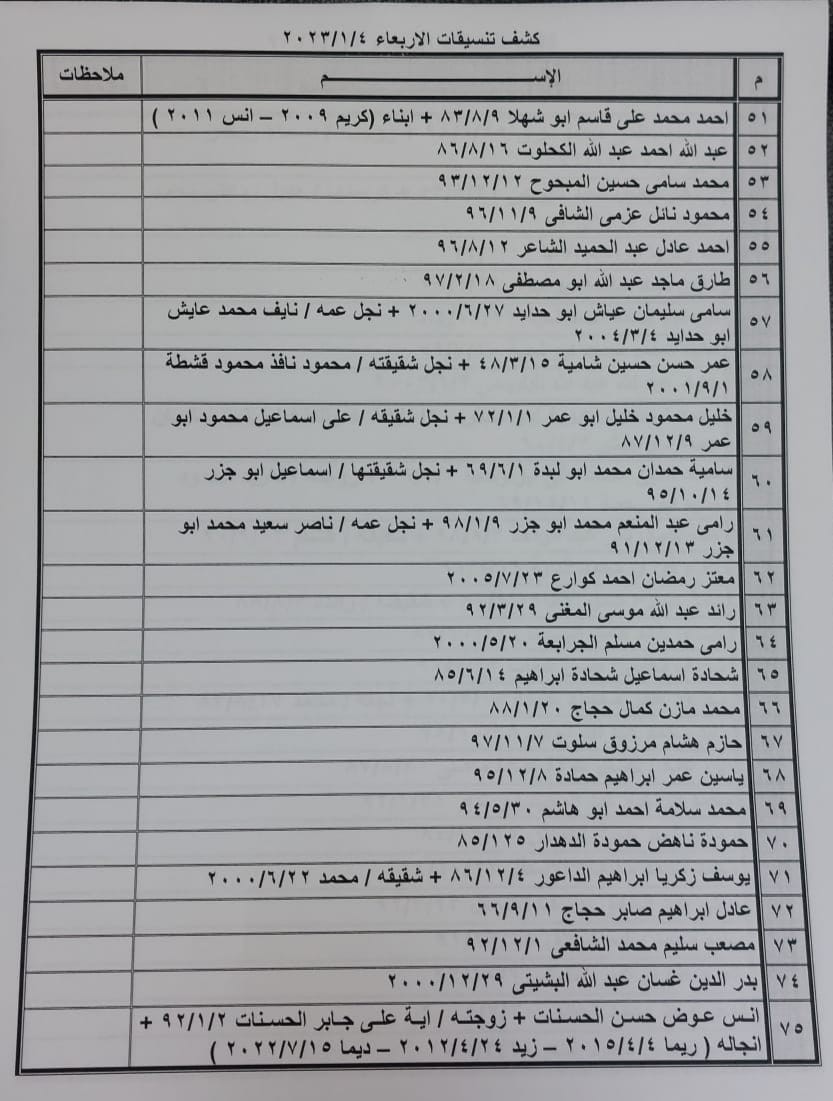 كشف تنسيقات الاربعاء ٢٠٢٣/١/٤
م الإســـــــم ملاحظات
٥١ احمد محمد على قاسم ابو شهلا ٨٣/٨/٩ + ابناء (كريم ٢٠٠٩ – انس ٢٠١١ )
٥٢ عبد الله احمد عبد الله الكحلوت ٨٦/٨/١٦
٥٣ محمد سامى حسين المبحوح ٩٣/١٢/١٢
٥٤ محمود نائل عزمى الشافى ٩٦/١١/٩
٥٥ احمد عادل عبد الحميد الشاعر ٩٦/٨/١٢
٥٦ طارق ماجد عبد الله ابو مصطفى ٩٧/٢/١٨
٥٧ سامى سليمان عياش ابو حدايد ٢٠٠٠/٦/٢٧ + نجل عمه / نايف محمد عايش
ابو حدايد ٢٠٠٤/٣/٤
٥٨ عمر حسن حسين شامية ٤٨/٣/١٥ + نجل شقيقته / محمود نافذ محمود قشطة
٢٠٠١/٩/١
٥٩ خليل محمود خليل ابو عمر ٧٢/١/١ + نجل شقيقه / على اسماعيل محمود ابو
عمر ٨٧/١٢/٩
٦٠ سامية حمدان محمد ابو لبدة ٦٩/٦/١ + نجل شقيقتها / اسماعيل ابو جزر
٩٥/١٠/١٤
٦١ رامى عبد المنعم محمد ابو جزر ٩٨/١/٩ + نجل عمه / ناصر سعيد محمد ابو
جزر ٩١/١٢/١٣
٦٢ معتز رمضان احمد كوارع ٢٠٠٥/٧/٢٣
٦٣ رائد عبد الله موسى المغنى ٩٢/٣/٢٩
٦٤ رامى حمدين مسلم الجرابعة ٢٠٠٠/٥/٢٠
٦٥ شحادة اسماعيل شحادة ابراهيم ٨٥/٦/١٤
٦٦ محمد مازن كمال حجاج ٨٨/١/٢٠
٦٧ حازم هشام مرزوق سلوت ٩٧/١١/٧
٦٨ ياسين عمر ابراهيم حمادة ٩٥/١٢/٨
٦٩ محمد سلامة احمد ابو هاشم ٩٤/٥/٣٠
٧٠ حمودة ناهض حمودة الدهدار ٨٥/١٢٥
٧١ يوسف زكريا ابراهيم الداعور ٨٦/١٢/٤ + شقيقه / محمد ٢٠٠٠/٦/٢٢
٧٢ عادل ابراهيم صابر حجاج ٦٦/٩/١١
٧٣ مصعب سليم محمد الشافعى ٩٢/١٢/١
٧٤ بدر الدين غسان عبد الله البشيتى ٢٠٠٠/١٢/٢٩
٧٥ انس عوض حسن الحسنات + زوجته / اية على جابر الحسنات ٩٢/١/٢ +
انجاله ( ريما ٢٠١٥/٤/٤ – زيد ٢٠١٢/٤/٢٤ – ديما ٢٠٢٢/٧/١٥ )